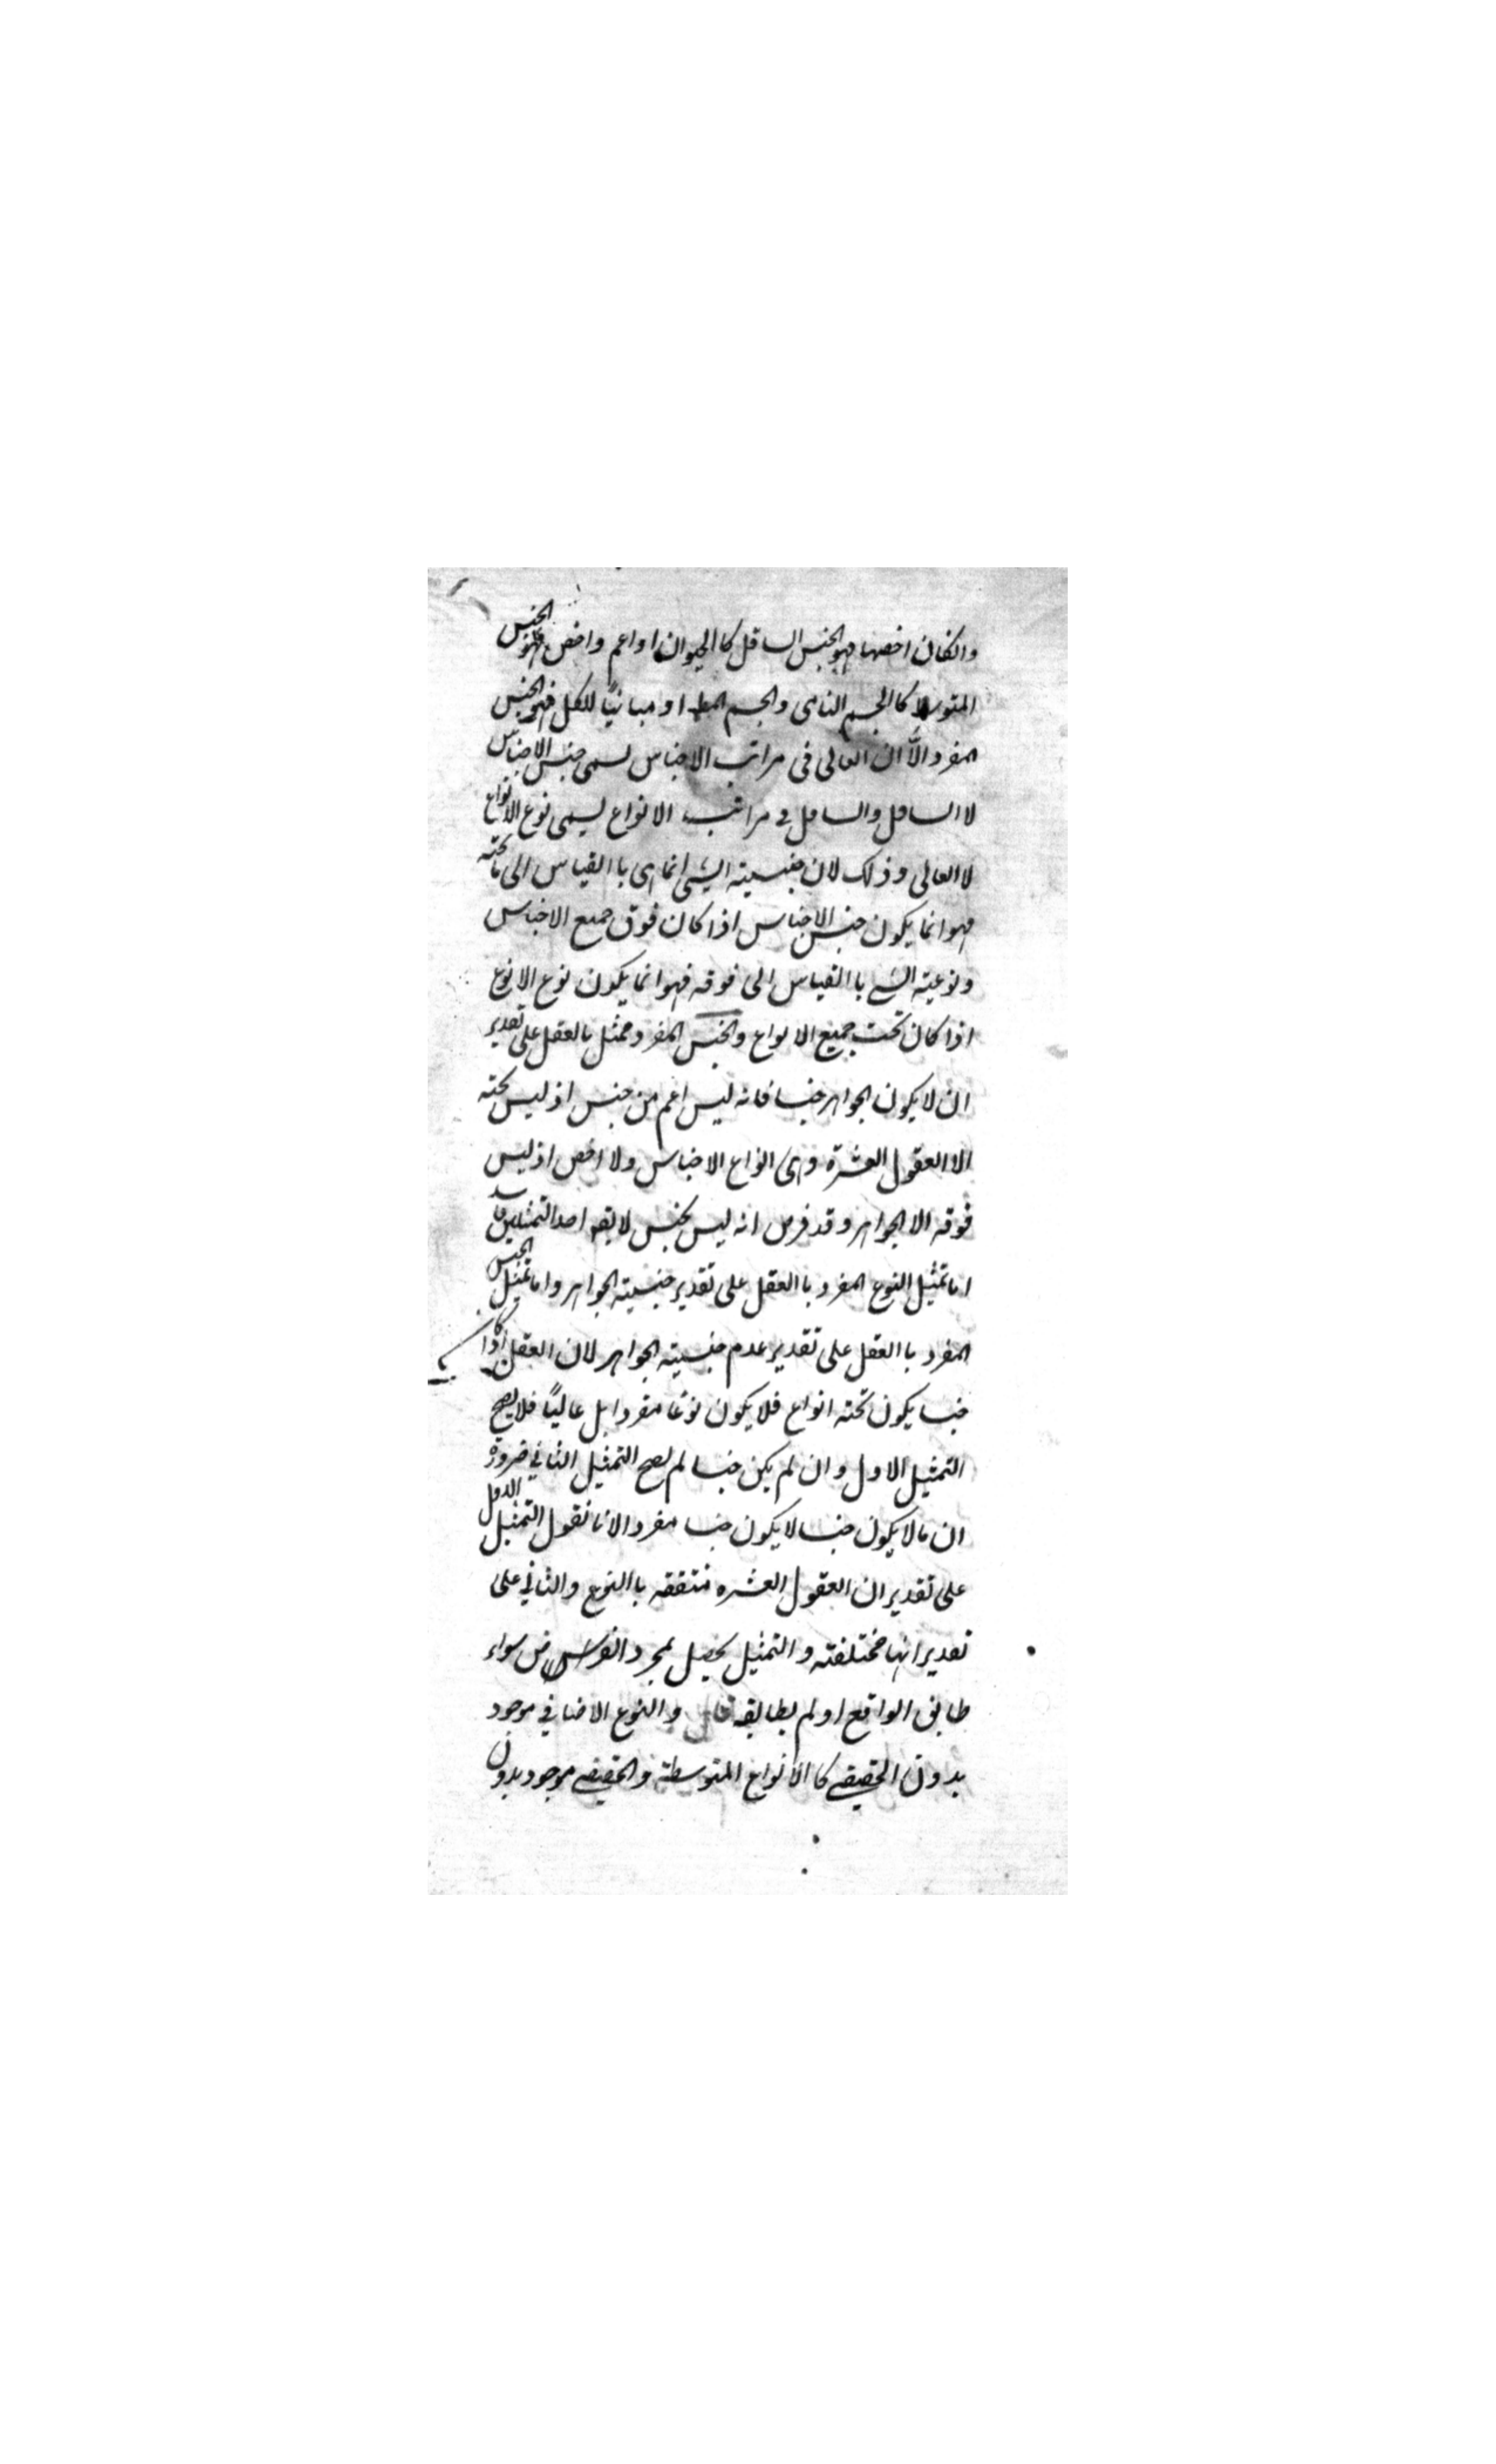 وانكان اخصها فهو الجنس السافل كا الحيوان او اعم واخص فهو الجنس
المتوسط كا الجسم النامى والجسم المط او مباينًا للكل فهو الجنس
المفرد الّا ان العالى فى مراتب الاجناس يسمى جنس الاجناس
لا السافل والسافل فى مراتب الانواع يسمى نوع الانواع
لا العالى وذلك لان جنسيته الشئ انما هى با القياس الى ما تحته
فهو انما يكون جنس الاجناس اذا كان فوق جميع الاجناس
ونوعيته الشئ با القياس الى فوقه فهو انما يكون نوع الانوع
اذا كان تحت جميع الانواع والجنس المفرد ممثل بالعقل على تقدير
ان لا يكون الجواهر جنسا فانه ليس اعم من جنس اذ ليس تحته
الا العقول العشرة وهى انواع الاجناس ولا اخص اذ ليس
فوقه الا الجواهر وقد فرض انه ليس بجنس لا يقه احد التمثلين فاسد
اما تمثيل النوع المفرد با العقل على تقدير جنسيته الجواهر واما تمثيل الجنس
المفرد با العقل على تقدير عدم جنسيته الجواهر لان العقل اذا كا
جنسا يكون تحته انواع فلا يكون نوعًا مفردا بل عاليًا فلا يصح
التمثيل الاول وان لم يكن جنسا لم يصح التمثيل الثاني ضرورة
ان ما لا يكون جنسا لا يكون جنسا مفردا لانا نقول التمثيل الاول
على تقدير ان العقول العشره متفقه با النوع والثاني على
تقدير انها مختلفته والتمثيل يحصل بمجرد الفرض سواء
طابق الواقع او لم يطابقه قال والنوع الاضافي موجود
بدون الحقيقى كا الانواع المتوسطة والحقيقى موجود بدون